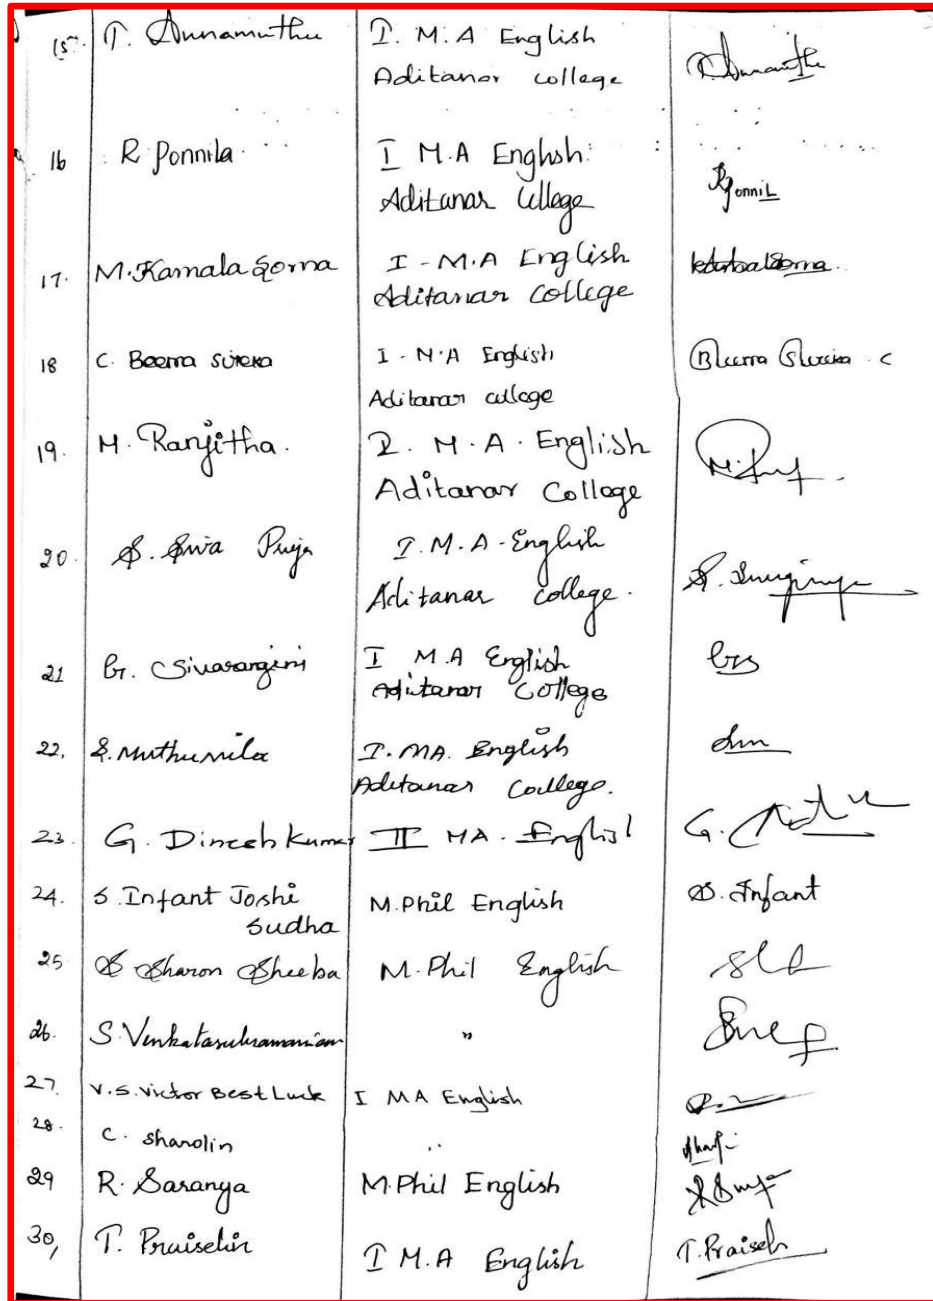 15. T. Annamuthu I. M. A English
Aditanar college
16 R Ponnila I M.A English
Aditanar College
17. M. Kamala Sorna I - M.A English
Aditanar College
18 C. Beema Sureka I - M.A English Beema Sureka . C
Aditanar college
19. M. Ranjitha. I. M. A. English
Aditanar College
20. S. Siva Puja I. M. A - English
Aditanar college.
21 G. Sivarangini I M.A English
Aditanar College
22. S. Muthunila I. MA. English
Aditanar College.
23. G. Dinesh Kumar II MA. English
24. S. Infant Joshi M.Phil English S. Infant
Sudha
25 S Sharon Sheeba M. Phil English
26. S. Venkatasubramaniam "
27. V. S. Victor Best Luck I MA English
28. C. Sharolin "
29 R. Saranya M.Phil English
30, T. Praiselin I M.A English T. Praiseli